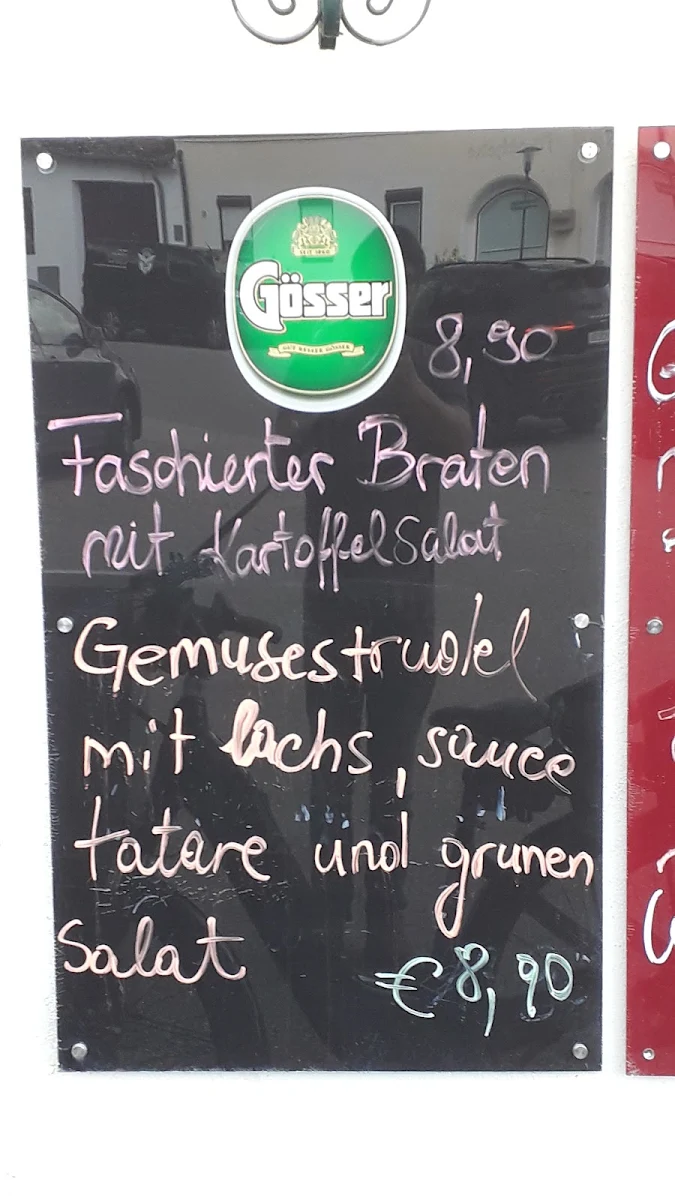 SEIT 1860
Gösser
GUT BESSER GÖSSER
8,90
Faschierter Braten
mit Kartoffelsalat
Gemusestrudel
mit lachs, sauce
tatare und grunen
Salat
€ 8,90